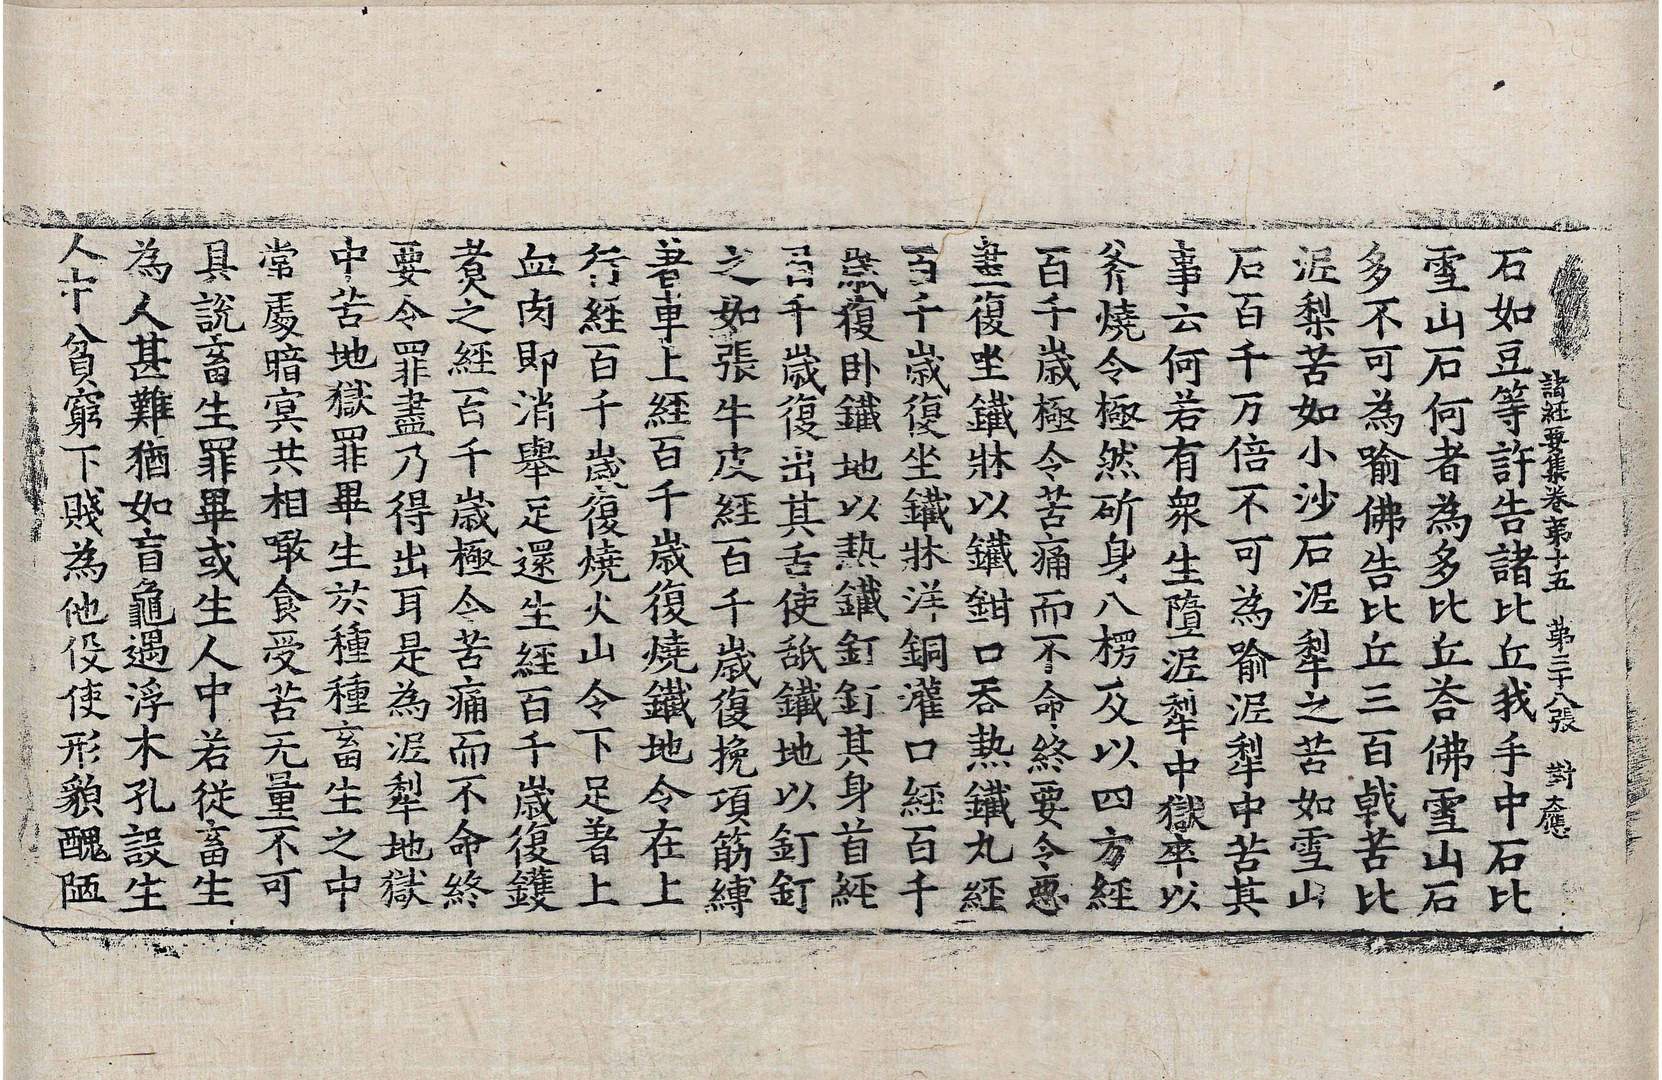 諸經要集卷苐十五　苐三十八張　對　大應
石如豆等許告諸比丘我手中石比
雪山石何者為多比丘荅佛雪山石
多不可為喻佛告比丘三百戟苦比
泥犁苦如小沙石泥犁之苦如雪山
石百千万倍不可為喻泥犁中苦其
事云何若有衆生墮泥犁中獄卒以
斧燒令極然斫身八楞及以四方經
百千歲極令苦痛而不命終要令惡
盡復坐鐵牀以鐵鉗口吞熱鐵丸經
百千歲復坐鐵牀洋銅灌口經百千
歲復卧鐵地以熱鐵釘釘其身首經
百千歲復出其舌使舐鐵地以釘釘
之如張牛皮經百千歲復挽項筋縛
著車上經百千歲復燒鐵地令在上
行經百千歲復燒火山令下足著上
血肉即消舉足還生經百千歲復鑊
煑之經百千歲極令苦痛而不命終
要令罪盡乃得出耳是為泥犁地獄
中苦地獄罪畢生於種種畜生之中
常處暗宾共相噉食受苦无量不可
具說畜生罪畢或生人中若從畜生
為人甚難猶如盲龜遇浮木孔設生
人中貧窮下賤為他伇使形貌醜陋